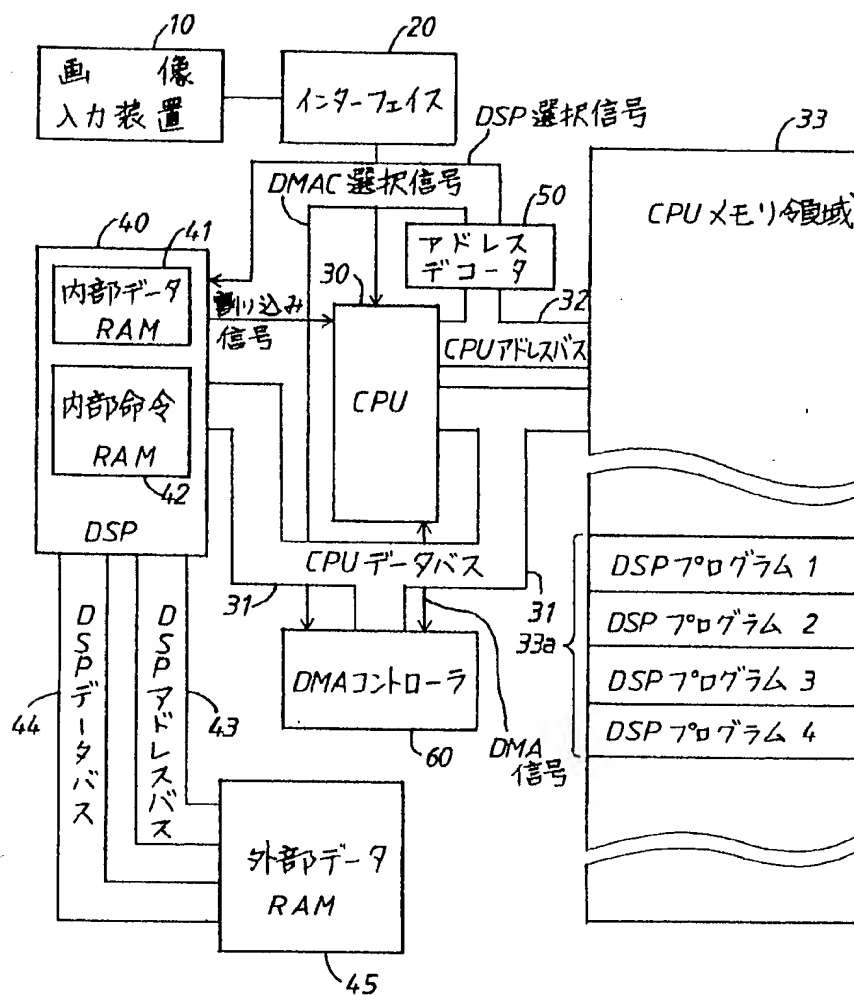 10
画像
入力装置
20
インターフェイス
DSP選択信号
33
DMAC選択信号
CPUメモリ領域
50
アドレス
デコータ
40
41
内部データ
RAM
割り込み
信号
30
CPU
32
CPUアドレスバス
内部命令
RAM
42
DSP
CPUデータバス
31
31
33a
DSPプログラム 1
DSPプログラム 2
DSPプログラム 3
DSPプログラム 4
DMAコントローラ
60
DMA
信号
DSPデータバス
44
DSPアドレスバス
43
外部データ
RAM
45